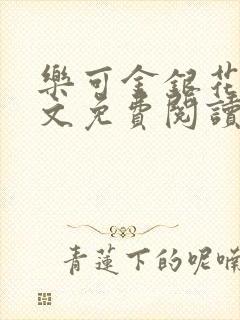 樂可金銀花
文免費閱讀
青蓮下的呢喃